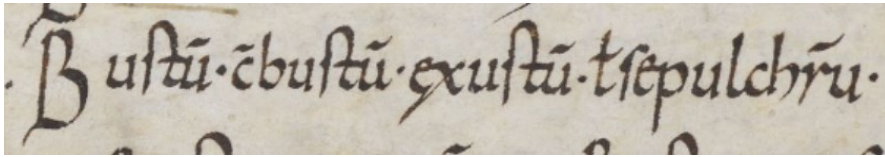 Bustū·c̄bustū·ęxustū·ł sepulchr̄u·